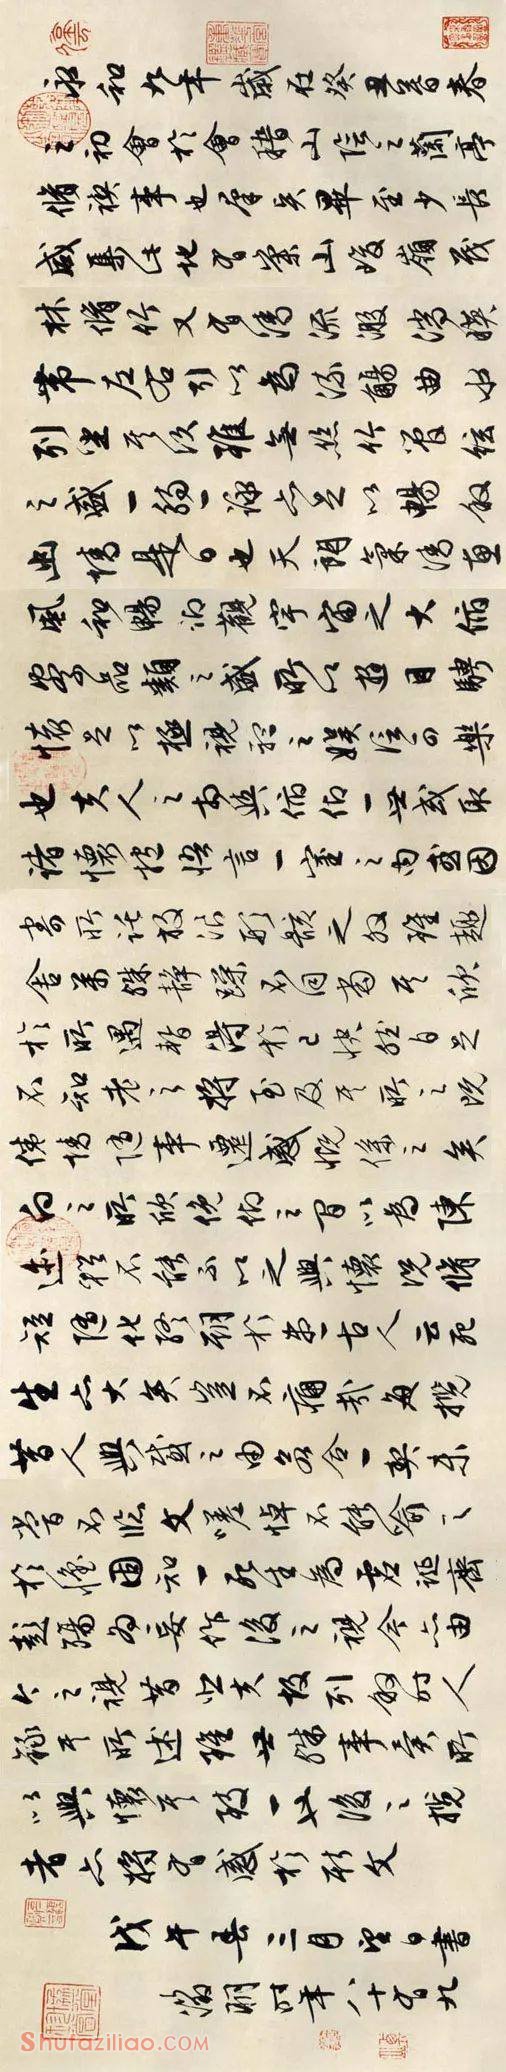 永和九年歲在癸丑暮春
之初會於會稽山陰之蘭亭
脩禊事也羣賢畢至少長
咸集此地有崇山峻嶺茂
林脩竹又有清流激湍映
帶左右引以為流觴曲水
列坐其次雖無絲竹管絃
之盛一觴一詠亦足以暢敘
幽情是日也天朗氣清惠
風和暢仰觀宇宙之大俯
察品類之盛所以遊目騁
懷足以極視聽之娛信可樂
也夫人之相與俯仰一世或取
諸懷抱悟言一室之內或因
寄所託放浪形骸之外雖趣
舍萬殊靜躁不同當其欣
於所遇暫得於己快然自足
不知老之將至及其所之既
倦情隨事遷感慨係之矣
向之所欣俛仰之間以為陳
迹猶不能不以之興懷況脩
短隨化終期於盡古人云死
生亦大矣豈不痛哉每攬
昔人興感之由若合一契未
嘗不臨文嗟悼不能喻之
於懷固知一死生為虛誕齊
彭殤為妄作後之視今亦由
今之視昔悲夫故列敘時人
錄其所述雖世殊事異所
以興懷其致一也後之攬
者亦將有感於斯文
戊午春三月望日書
徵明時年八十有九
Shufaziliao.COM